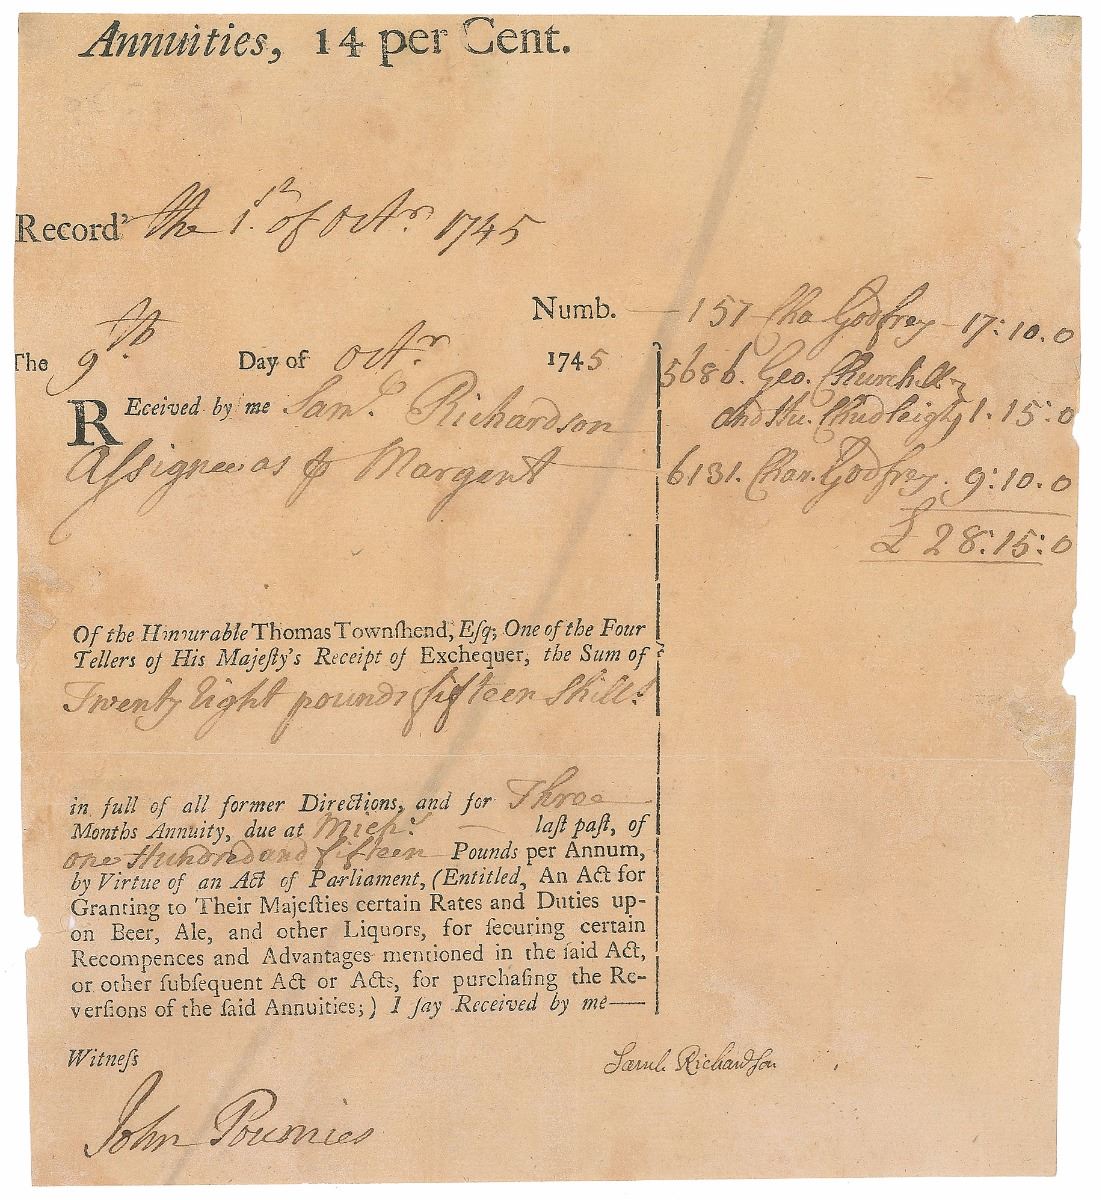 Annuities, 14 per Cent.
Record' the 1st. of Octr. 1745
Numb. 157 Cha Godfrey 17:10.0
The 9th. Day of Octr. 1745
5686. Geo. Churchill
REceived by me Saml. Richardson
and Hu. Chudleigh 1.15:0
Assignee as ꝑ Margent
6131. Char. Godfrey. 9:10.0
£ 28:15:0
Of the Honourable Thomas Townſhend, Eſq; One of the Four
Tellers of His Majeſty's Receipt of Exchequer, the Sum of
Twenty Eight pounds fifteen Shills.
in full of all former Directions, and for Three
Months Annuity, due at Michs. laſt paſt, of
one Hundred and fifteen Pounds per Annum,
by Virtue of an Act of Parliament, (Entitled, An Act for
Granting to Their Majeſties certain Rates and Duties up-
on Beer, Ale, and other Liquors, for ſecuring certain
Recompences and Advantages mentioned in the ſaid Act,
or other ſubſequent Act or Acts, for purchaſing the Re-
verſions of the ſaid Annuities;) I ſay Received by me
Witneſs
Saml. Richardson
John